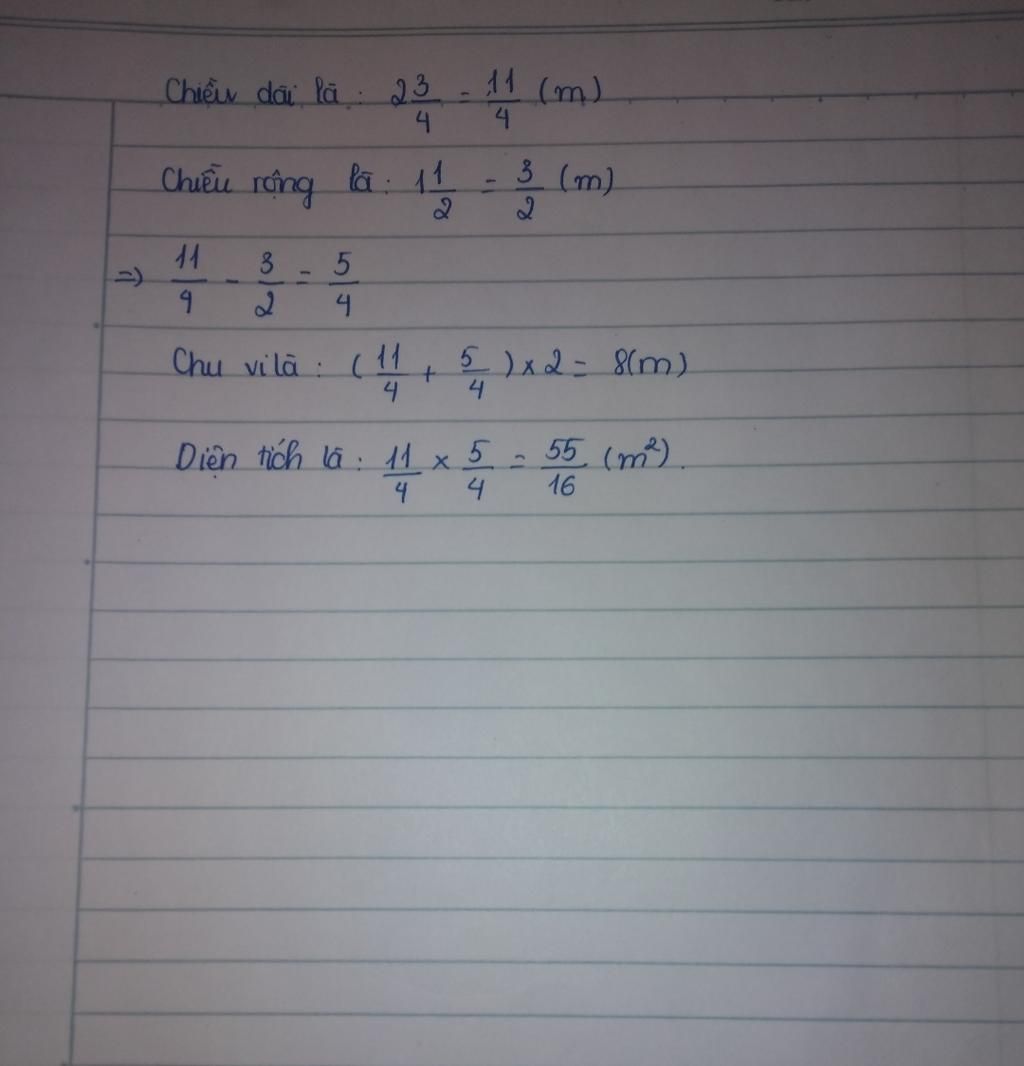 Chiều dài là : 2 3/4 = 11/4 (m)
Chiều rộng là : 1 1/2 = 3/2 (m)
=> 11/4 - 3/2 = 5/4
Chu vi là : ( 11/4 + 5/4 ) × 2 = 8(m)
Diện tích là : 11/4 × 5/4 = 55/16 (m²).